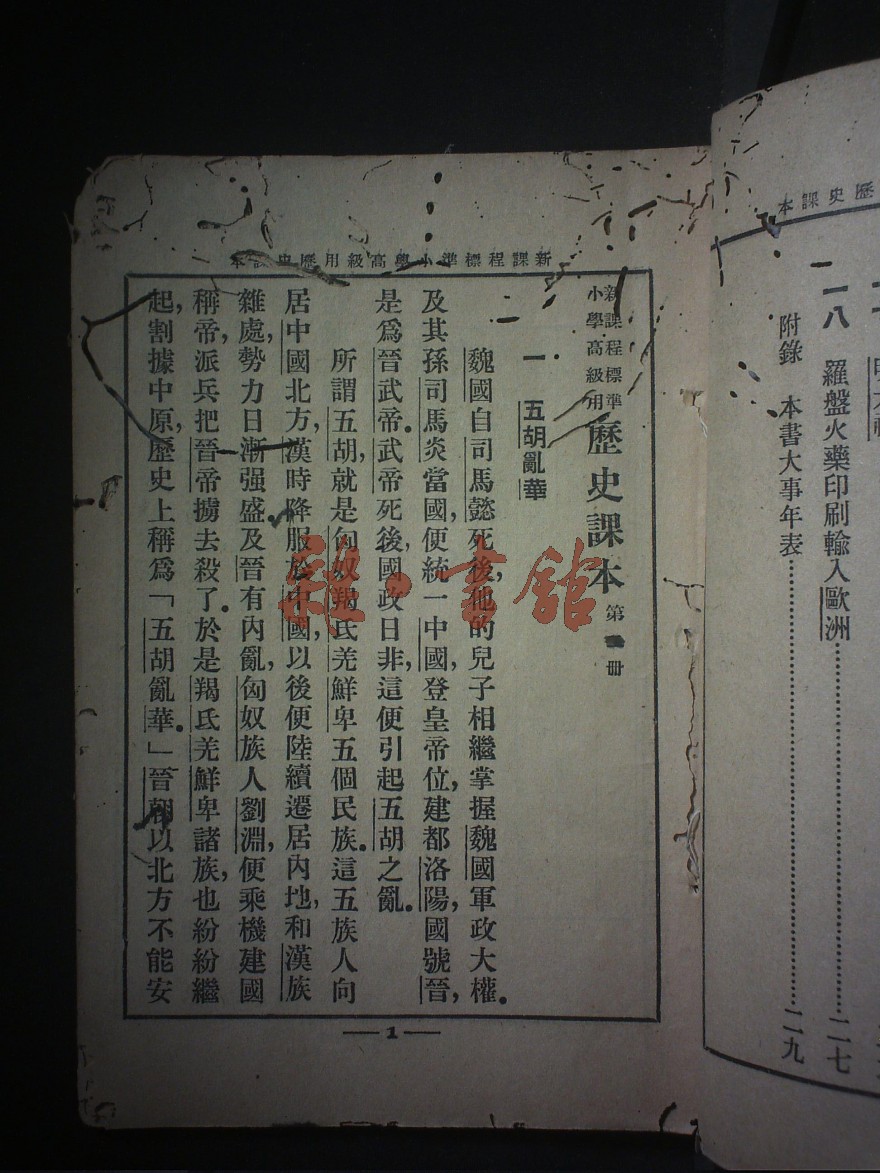 歷史課本
一八 羅盤火藥印刷輸入歐洲……二七
附錄 本書大事年表……二九
新課程標準小學高級用歷史課本
新課程標準
小學高級用
歷史課本 第 冊
一 五胡亂華
魏國自司馬懿死後,他的兒子相繼掌握魏國軍政大權。
及其孫司馬炎當國,便統一中國,登皇帝位,建都洛陽,國號晉,
是爲晉武帝。武帝死後,國政日非,這便引起五胡之亂。
所謂五胡,就是匈奴羯氐羌鮮卑五個民族。這五族人向
居中國北方,漢時降服於中國,以後便陸續遷居內地,和漢族
雜處,勢力日漸强盛。及晉有內亂,匈奴族人劉淵,便乘機建國
稱帝,派兵把晉帝擄去殺了。於是羯氐羌鮮卑諸族,也紛紛繼
起,割據中原,歷史上稱爲「五胡亂華。」晉朝以北方不能安
1